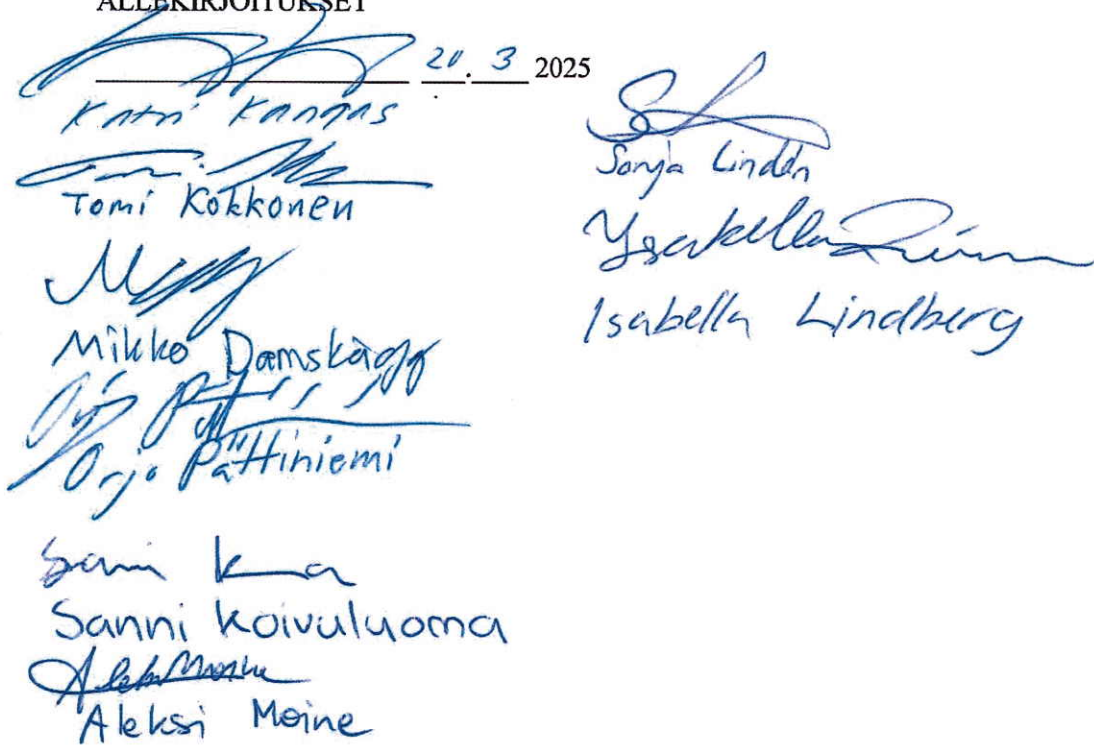 ALLEKIRJOITUKSET
20. 3 2025
Katri Kangas
Tomi Kokkonen
Mikko Damskägg
Orjo Pättiniemi
Sanni Koivuluoma
Aleksi Moine
Sonja Lindén
Isabella Lindberg